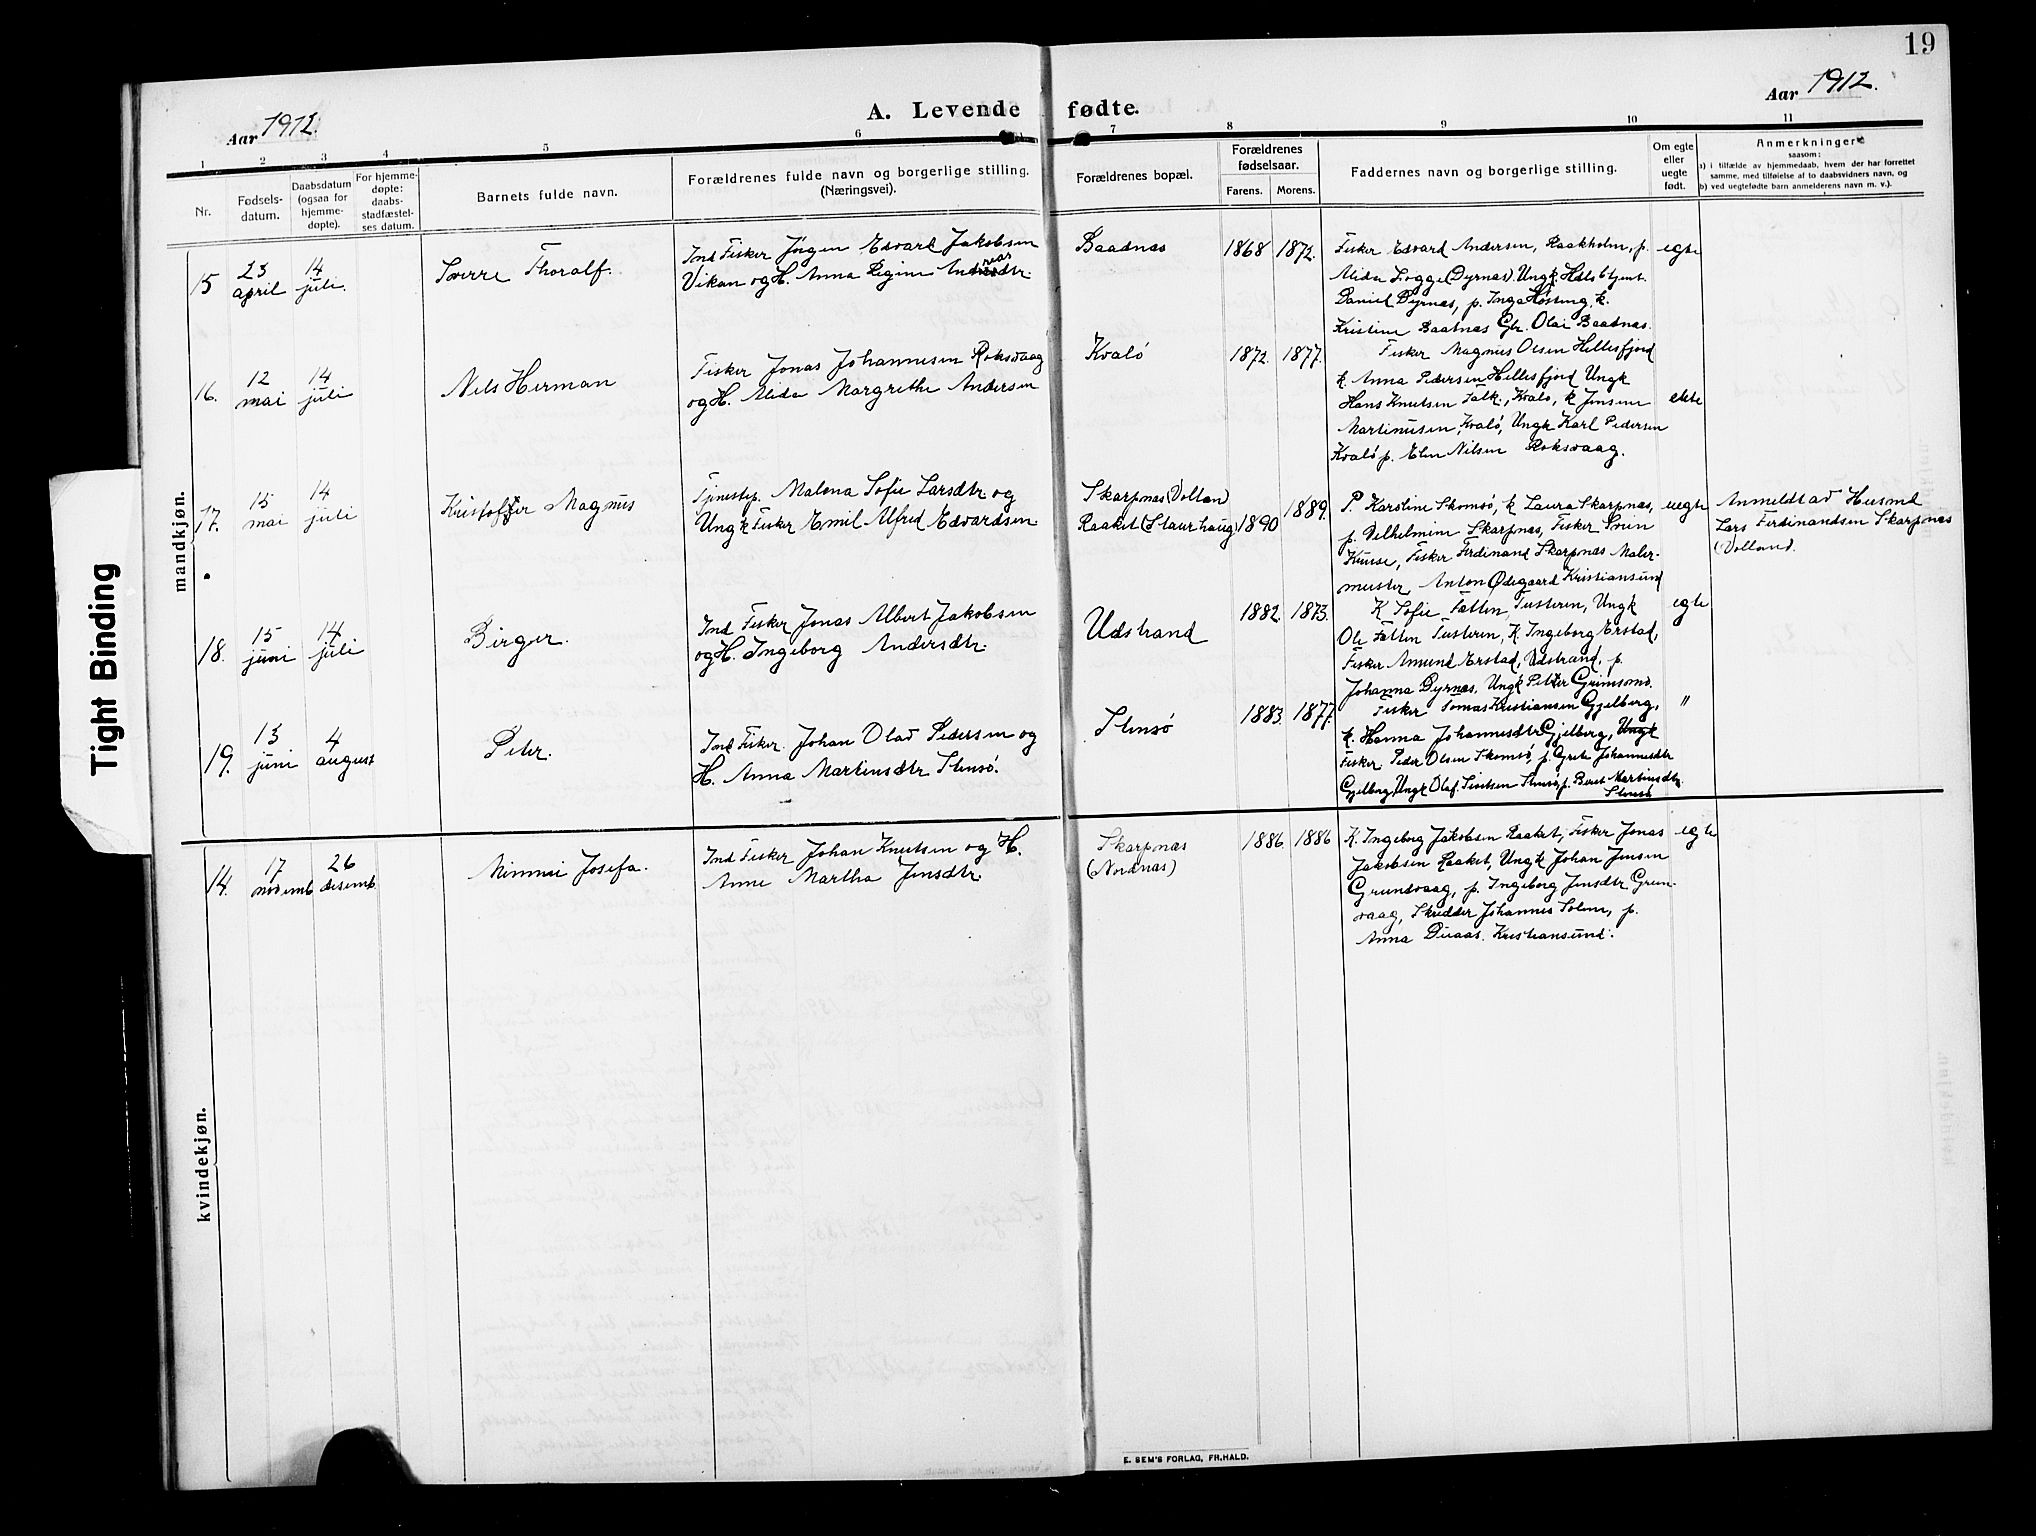 19
Aar 1912.
A. Levende fødte.
Aar 1912.
1 2 3 4 5 6 7 8 9 10 11
Nr.
Fødsels-
datum.
Daabsdatum
(ogsaa for
hjemme-
døpte).
For hjemme-
døpte:
daabs-
stadfæstel-
ses datum.
Barnets fulde navn.
Forældrenes fulde navn og borgerlige stilling.
(Næringsvei).
Forældrenes bopæl.
Forældrenes
fødselsaar.
Farens. Morens.
Faddernes navn og borgerlige stilling.
Om egte
eller
uegte
født.
Anmerkninger
saasom:
a) i tilfælde av hjemmedaab, hvem der har forrettet
samme, med tilføielse af to daabsvidners navn, og
b) ved uegtefødte barn anmelderens navn m. v.).
mandkjøn.
15
23
april
14
juli.
Sverre Thoralf.
Ind Fisker Jørgen Edvard Jakobsen
Vikan og H. Anna Regine
Baadnes
1868 1872.
Fisker Edvard Andersen, Raakholm, p.
Alida Logge (Dyrnæs). Ungk.
Daniel Dyrnæs, p. Inga k.
Kristine Baatnæs Gbr. Olai Baadnæs.
egte
16.
12
mai
14
juli
Nels Herman
Fisker Jonas Johannesen Roksvaag
og H. Alida Margrethe Andersen
Kvalø
1872. 1877.
Fisker Magnus Olsen Hellesfjord
k. Anna Pedersen Hellesfjord Ungk
Hans Knutsen Kvalø, k Jensine
Martinusen, Kvalø, Ungk Karl Pedersen
Kvalø p. Elen Nilsen Roksvaag.
ekte
17.
15
mai
14
juli
Kristoffer Magnus
Tjenestep. Malena Sofie Larsdtr og
Ungk Fisker Emil Alfred Edvardsen
Skarpnæs (Volland)
Raaket (Staurhaug)
1890 1889.
P. Karstine Skomsø, k Laura Skarpnæs,
p. Vilhelmine Skarpnæs, Fisker
Fisker Ferdinand Skarpnæs Maler-
mester Anton Ødegaard Kristiansund
uegte
Anmeldt av Husmd
Lars Ferdinandsen Skarpnæs
(Volland.
18.
15
juni
14
juli
Birger.
Ind Fisker Jonas Albert Jakobsen
og H. Ingeborg Andersdtr.
Udstrand
1882. 1873.
K Sofie Fætten Tusteren, Ungk
Ole Fætten Tusteren, K. Ingeborg Erstad,
Fisker Amund Erstad, Udstrand, p.
Johanna Dyrnæs, Ungk Petter Grimsmo.
egte
19.
13
juni
4
august
Peter.
Ind Fisker Johan Olav Pedersen og
H. Anna Martinsdtr Stensø.
Stensø
1883 1877.
Fisker Tomas Kristiansen Gjelberg,
k. Hanna Johannesdtr Gjelberg, Ungk
Fisker Peder Olsen Skomsø, p. Grete Johannesdtr
Gjelberg, Ungk Olaf Stensø, p. Beret Martinsdtr.
Stensø
"
kvindekjøn.
14.
17
novemb
26
desemb
Mimmi Josefa.
Ind Fisker Johan Knutsen og H.
Anne Martha Jensdtr.
Skarpnæs
(Nordnæs)
1886. 1886
K. Ingeborg Jakobsen Raaket, Fisker Jonas
Jakobsen Raaket, Ungk Johan Jensen
Grundvaag, p. Ingeborg Jensdtr Grun-
vaag, Skrædder Johannes Solem, p.
Anna Kristiansund.
egte
E. SEM'S FORLAG, FR.HALD.
Tight Binding